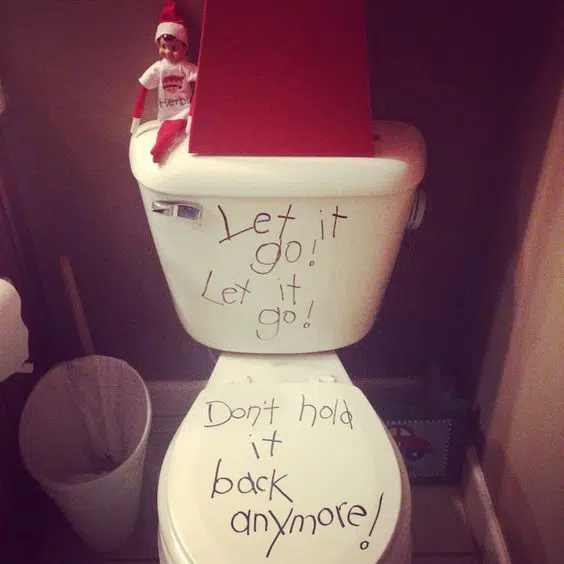 Herbie
Let it
go!
Let it
go!
Don't hold
it
back
anymore!